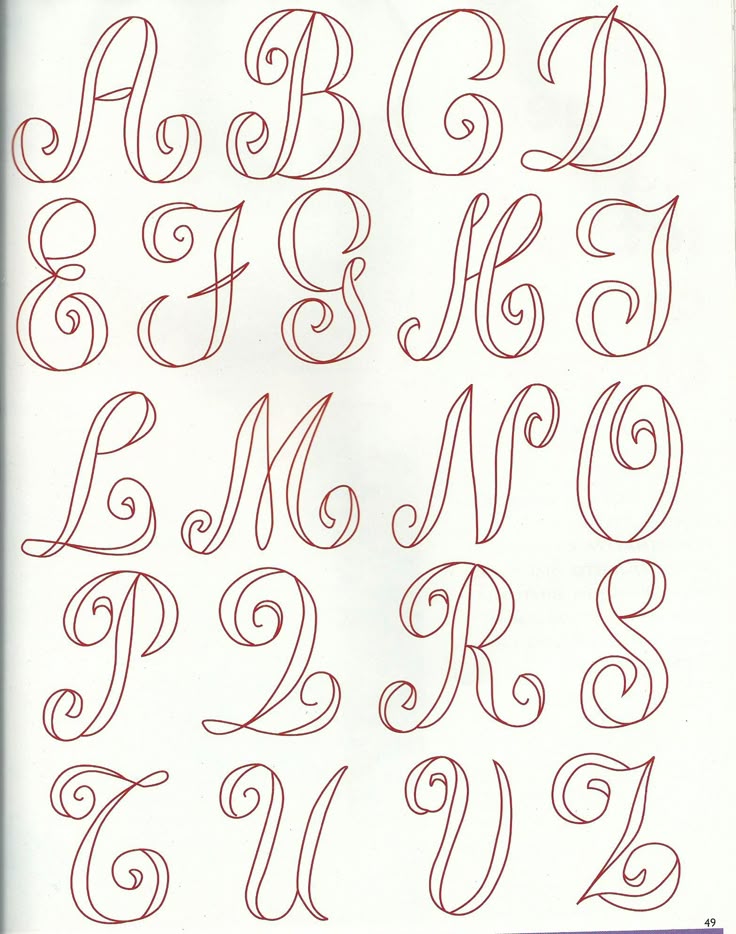 A B C D
E F G H I
L M N O
P Q R S
T U V Z
49